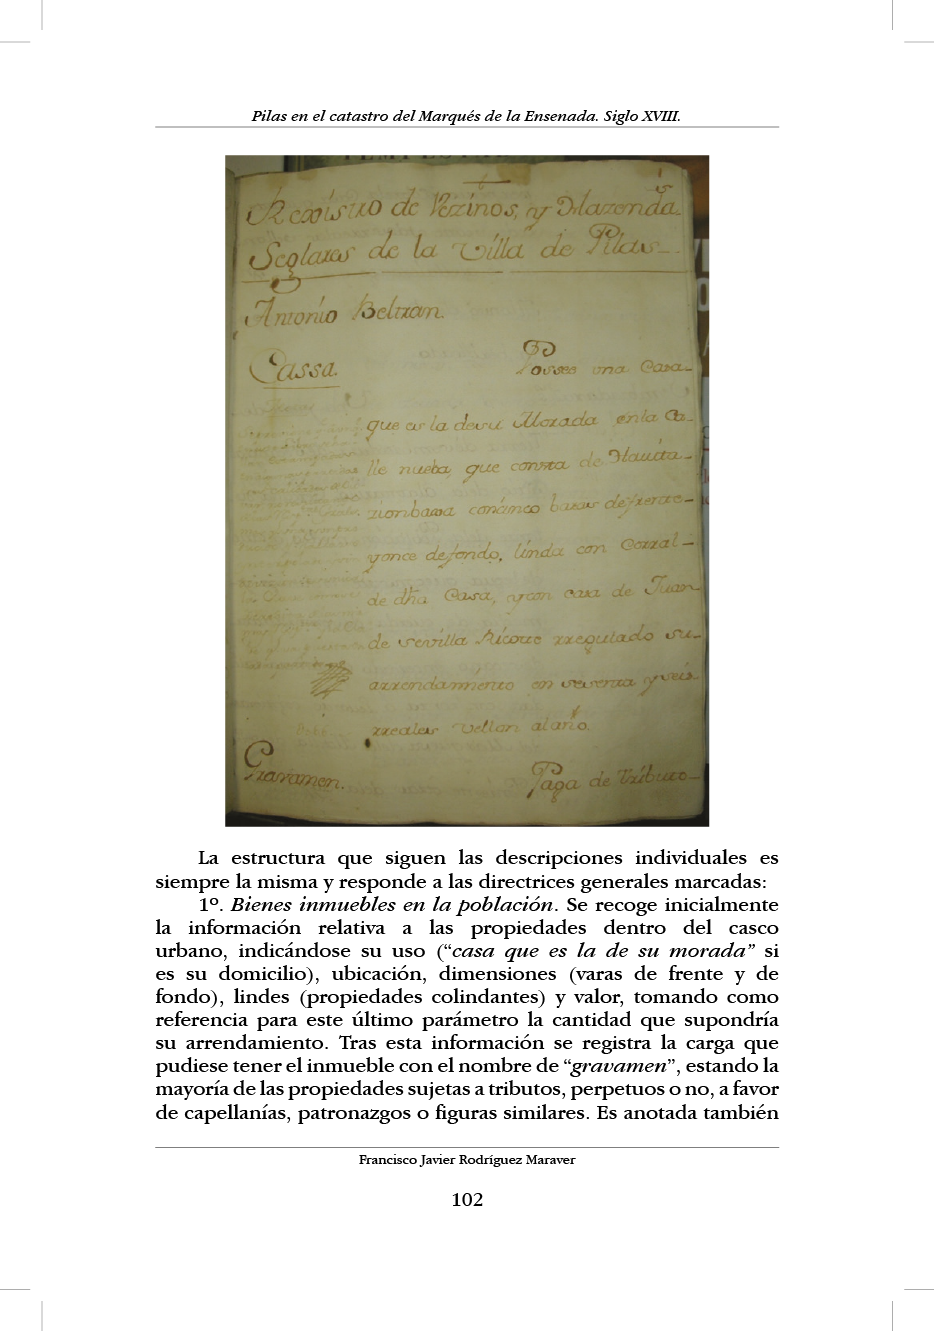 Pilas en el catastro del Marqués de la Ensenada. Siglo XVIII.
Rexistro de Vezinos, y Hazenda
Seglares de la Villa de Pilas
Antonio Beltran.
Cassa.
Possee una Casa
que es la de su Morada en la Ca-
lle nueba, que consta de Havita-
zion baxa con cinco baras de frente
y once de fondo, linda con Corral
de dha Casa, y con casa de Juan
de sevilla Ricote rregulado su
arrendamiento en sesenta y seis
rreales vellon al año.
Gravamen.
Paga de Tributo
La estructura que siguen las descripciones individuales es
siempre la misma y responde a las directrices generales marcadas:
1º. Bienes inmuebles en la población. Se recoge inicialmente
la información relativa a las propiedades dentro del casco
urbano, indicándose su uso (“casa que es la de su morada” si
es su domicilio), ubicación, dimensiones (varas de frente y de
fondo), lindes (propiedades colindantes) y valor, tomando como
referencia para este último parámetro la cantidad que supondría
su arrendamiento. Tras esta información se registra la carga que
pudiese tener el inmueble con el nombre de “gravamen”, estando la
mayoría de las propiedades sujetas a tributos, perpetuos o no, a favor
de capellanías, patronazgos o figuras similares. Es anotada también
Francisco Javier Rodríguez Maraver
102